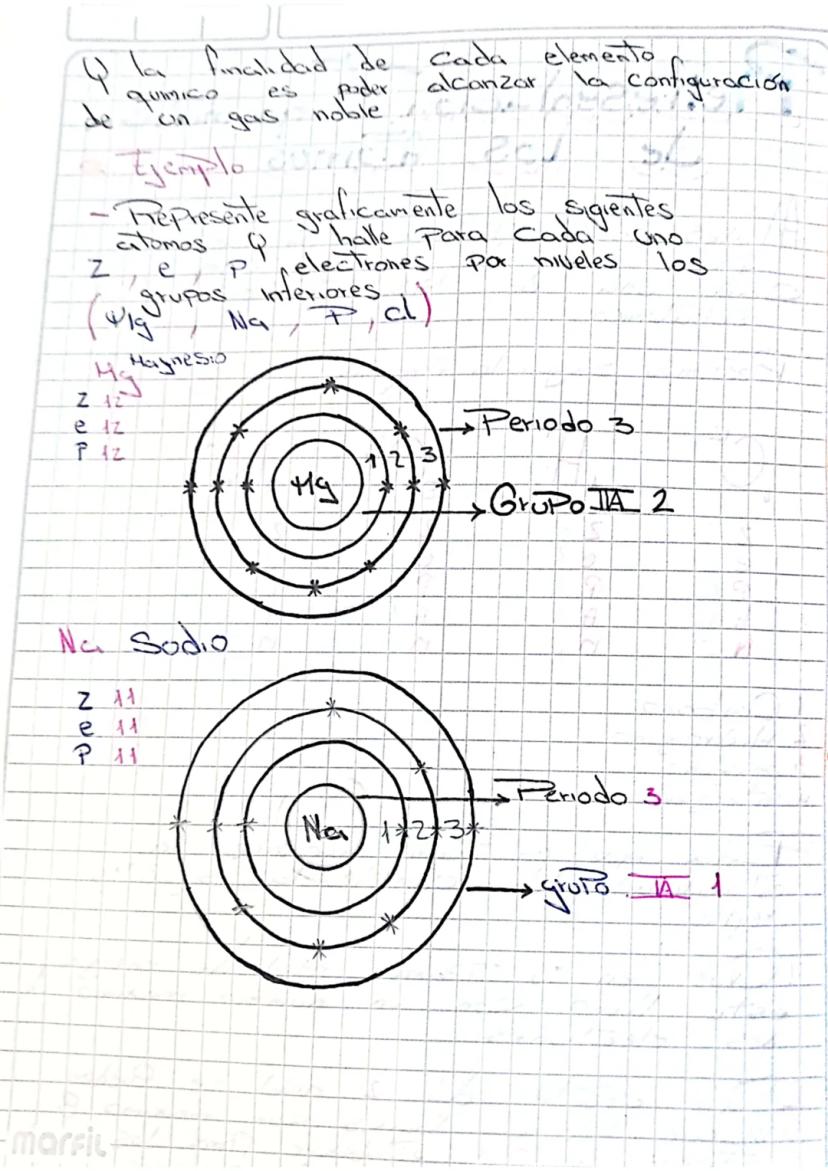 Y la finalidad de cada elemento
quimico es poder alcanzar la configuración
de un gas noble
Ejemplo
- Represente graficamente los sigientes
atomos y halle para cada uno
Z, e, P, electrones por niveles los
grupos inferiores
(Mg, Na, P, cl)
Mg Magnesio
Z 12
e 12
P 12
Mg
1 2 3
Periodo 3
Grupo IIA 2
Na Sodio
Z 11
e 11
P 11
Na
1 2 3
Periodo 3
grupo IA 1
marfil